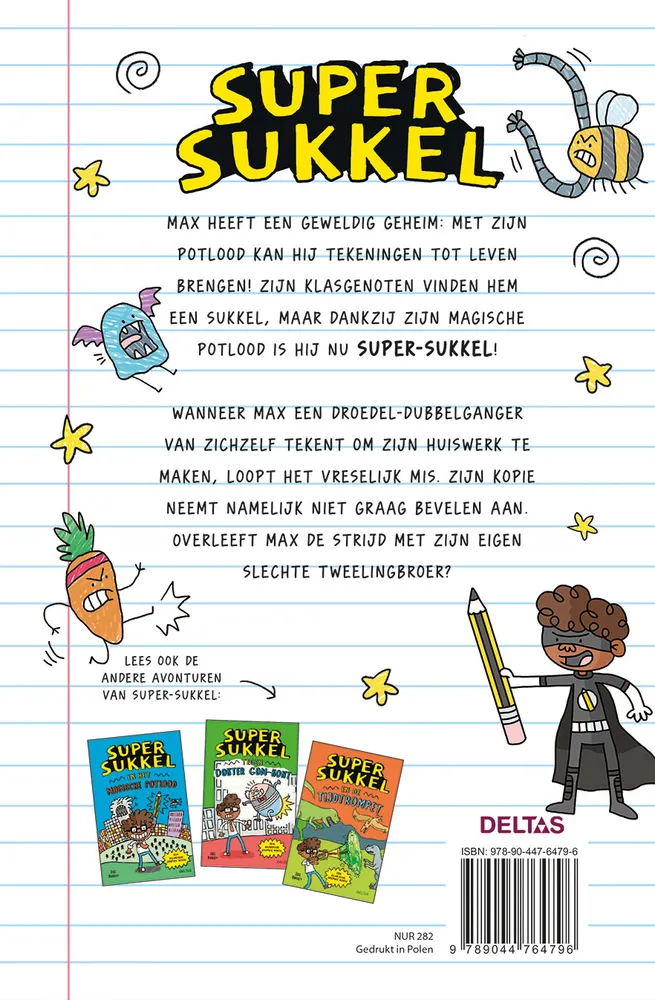 SUPER
SUKKEL
MAX HEEFT EEN GEWELDIG GEHEIM: MET ZIJN
POTLOOD KAN HIJ TEKENINGEN TOT LEVEN
BRENGEN! ZIJN KLASGENOTEN VINDEN HEM
EEN SUKKEL, MAAR DANKZIJ ZIJN MAGISCHE
POTLOOD IS HIJ NU SUPER-SUKKEL!
WANNEER MAX EEN DROEDEL-DUBBELGANGER
VAN ZICHZELF TEKENT OM ZIJN HUISWERK TE
MAKEN, LOOPT HET VRESELIJK MIS. ZIJN KOPIE
NEEMT NAMELIJK NIET GRAAG BEVELEN AAN.
OVERLEEFT MAX DE STRIJD MET ZIJN EIGEN
SLECHTE TWEELINGBROER?
LEES OOK DE
ANDERE AVONTUREN
VAN SUPER-SUKKEL:
SUPER
SUKKEL
EN HET
MAGISCHE POTLOOD
SUPER
SUKKEL
TEGEN
DOKTER GOM-BONT
SUPER
SUKKEL
EN DE
TIJDTROMPET
DELTAS
ISBN: 978-90-447-6479-6
NUR 282
Gedrukt in Polen
9 789044 764796